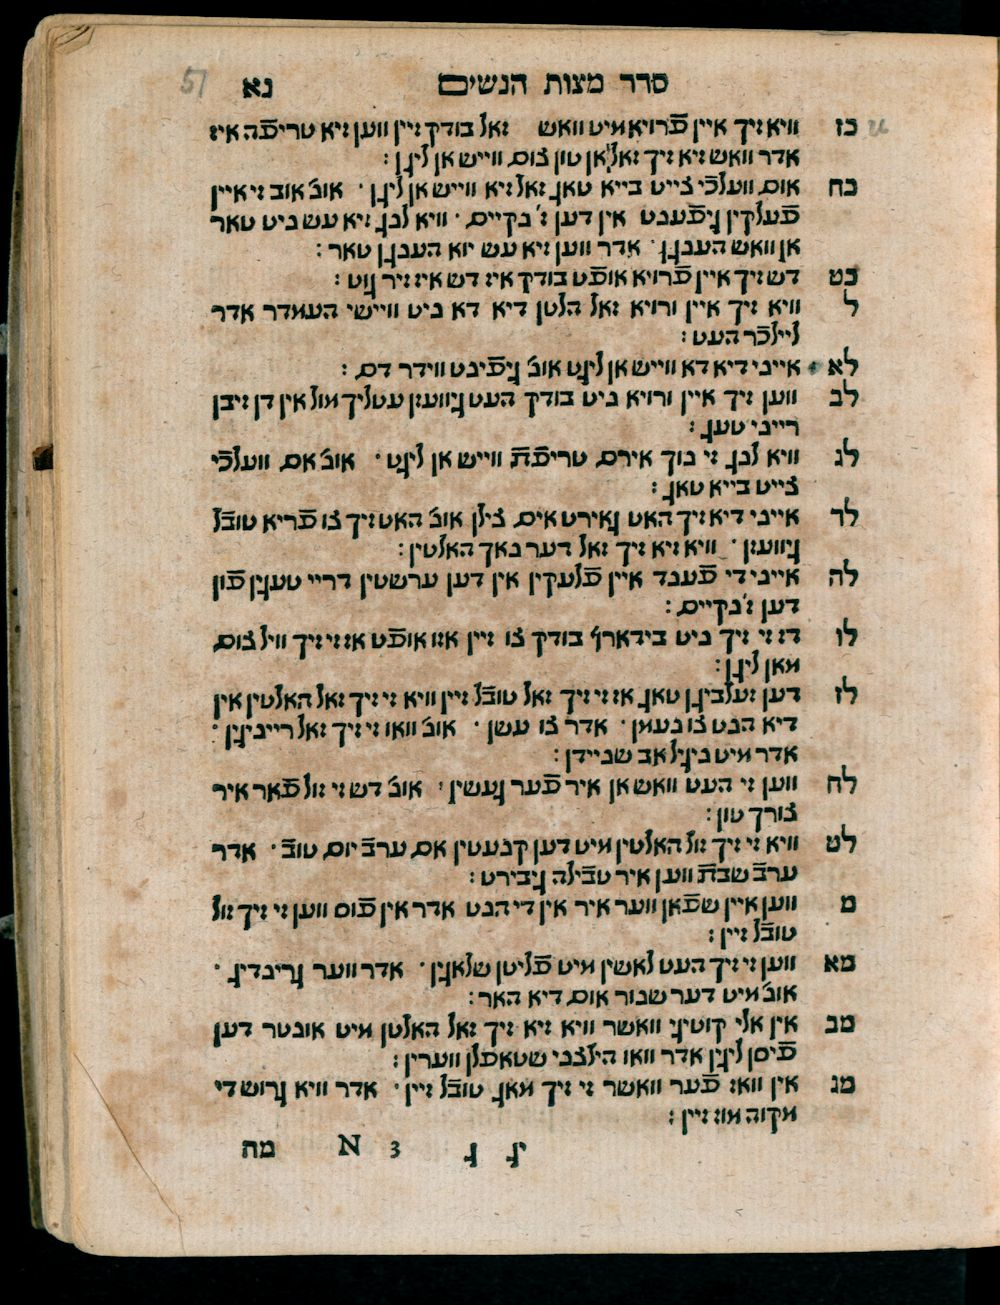 51 נא סדר מצות הנשים
כז וויא זיך איין פֿרויא מיט וואש זאל בודק זיין ווען זיא טריפֿה איז
אדר וואש זיא זיך זאל אן טון צום ווייש אן ליגן :
כח אום וועלכֿי צייט בייא טאג זאל זיא ווייש אן ליגן · אונ׳ אוב זי איין
פֿעלקין גיפֿענט אין דען ז׳ נקיים · וויא לנג זיא עש ניט טאר
אן וואש הענגן · אדר ווען זיא עש יוא הענגן טאר :
כט דש זיך איין פֿרויא אופֿט בודק איז דש איז זיר גוט :
ל וויא זיך איין ורויא זאל הלטן דיא דא ניט וויישי העמדר אדר
ליילכֿר העט :
לא אייני דיא דא ווייש אן ליגט אונ׳ גיפֿינט ווידר דם :
לב ווען זיך איין ורויא ניט בודק העט גיוועזן עטליך מול אין דן זיבן
רייני טעג :
לג וויא לנג זי נוך אירם טריפֿת ווייש אן ליגט · אונ׳ אם וועלכֿי
צייט בייא טאג :
לד אייני דיא זיך האט גאירט אים צילן אונ׳ האט זיך צו פֿריא טובֿל
גיוועזן · וויא זיא זיך זאל דער נאך האלטין :
לה אייני די פֿענד איין פֿלעקין אין דען ערשטין דריי טעגין פֿון
דען ז׳ נקיים :
לו דז זי זיך ניט בידארף בודק צו זיין אזו אופֿט אז זי זיך וויל צום
מאן ליגן :
לז דען זעלביגן טאג אז זי זיך זאל טובֿל זיין וויא זי זיך זאל האלטין אין
דיא הנט צו נעמן · אדר צו עשן · אונ׳ וואו זי זיך זאל רייניגין ·
אדר מיט ניגיל אב שניידן :
לח ווען זי העט וואש אן איר פֿער געשין · אונ׳ דש זי זול פֿאר איר
צורך טון :
לט וויא זי זיך זול האלטין מיט דען קנעטין אם ערבֿ יום טובֿ · אדר
ערבֿ שבת ווען איר טבֿילה גיבירט :
מ ווען איין שפֿאן ווער איר אין די הנט אדר אין פֿוס ווען זי זיך זול
טובֿל זיין :
מא ווען זי זיך העט לאשין מיט פֿליטן שלאגין · אדר ווער גרינדיג ·
אונ׳ מיט דער שנור אום דיא האר :
מב אין אלי קוטיגי וואשר וויא זיא זיך זאל האלטן מיט אונטר דען
פֿיסן ליגין אדר וואו הילצני שטאפלן ווערין :
מג אין וואז פֿער וואשר זי זיך מאג טובֿל זיין · אדר וויא גרוש די
מקוה מוז זיין :
יג ג 3 א מה